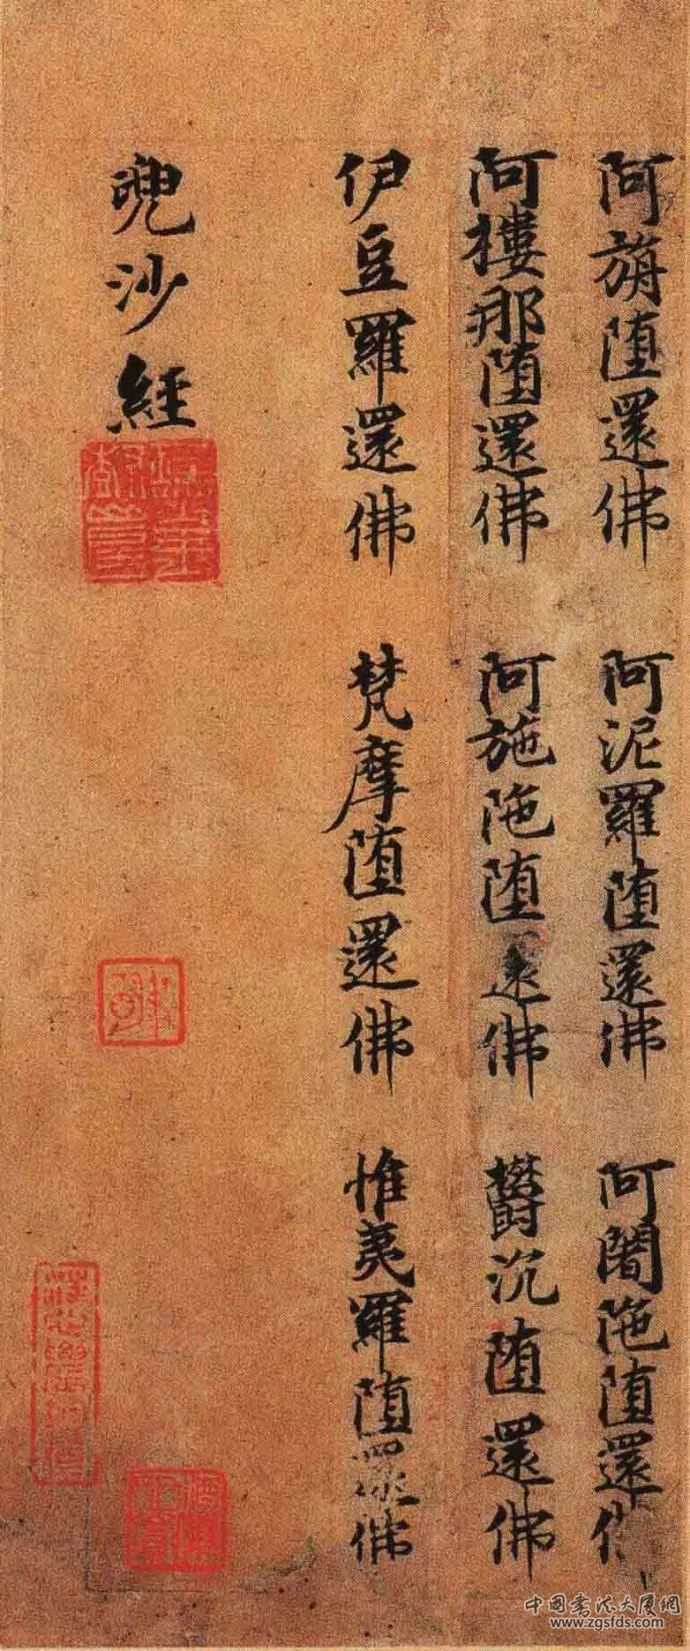 阿旃墮還佛 阿泥羅墮還佛 阿闍陁墮還佛
阿摟那墮還佛 阿施陁墮還佛 欝沉墮還佛
伊豆羅還佛 梵摩墮還佛 惟夷羅墮還佛
兜沙經
中国书法大厦网
www.zgsfds.com